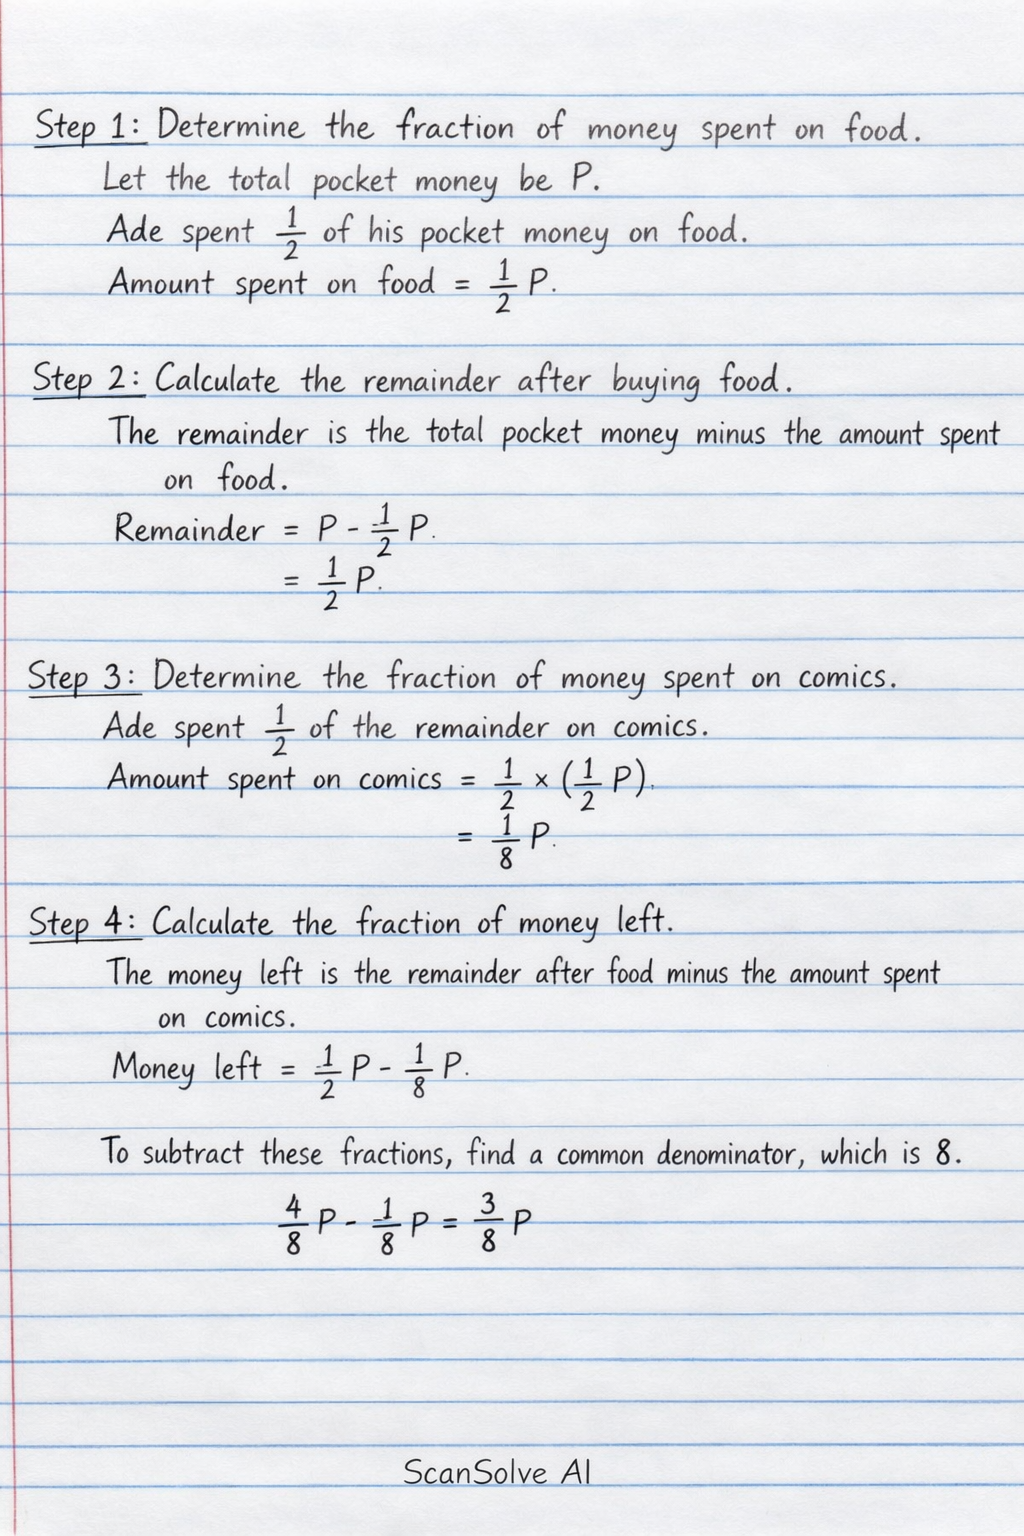 Step 1: Determine the fraction of money spent on food.
Let the total pocket money be P.
Ade spent 1/2 of his pocket money on food.
Amount spent on food = 1/2 P.
Step 2: Calculate the remainder after buying food.
The remainder is the total pocket money minus the amount spent
on food.
Remainder = P - 1/2 P.
= 1/2 P.
Step 3: Determine the fraction of money spent on comics.
Ade spent 1/2 of the remainder on comics.
Amount spent on comics = 1/2 × (1/2 P).
= 1/8 P.
Step 4: Calculate the fraction of money left.
The money left is the remainder after food minus the amount spent
on comics.
Money left = 1/2 P - 1/8 P.
To subtract these fractions, find a common denominator, which is 8.
4/8 P - 1/8 P = 3/8 P
ScanSolve AI